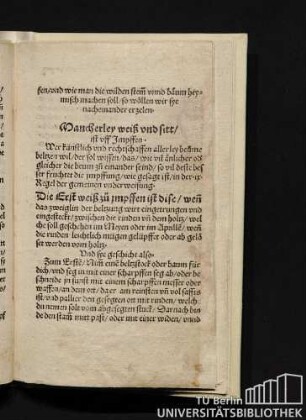 sen/ vnd wie man die wilden stem vnnd baum hey-
misch machen soll so wöllen wir sye
nacheinander erzelen.
Mancherley weiß vnd sitt/
ist vff Jmpffen.
Wer künstlich vnd rechtschaffen aller ley beüme
beltze wil/ der sol wissen/ das/ wie vil änlicher od
gleicher die beum zů einander seind/ so vil deste bes
ser frucht die jmpffung/ wie gesagt ist/ in der ix
Regel der gemeinen vnderweisung.
Die Erst weiß zů jmpffen ist dise/ weñ
das zweiglin der beltzung wirt eingetrungen vnd
eingesteckt/ zwischen die rinden vñ dem holtz/ wel
che soll geschehen im Meyen oder im Aprille/ weñ
die rinden leichtlich mögen gelüpfft oder ab gelö
set werden vom holtz.
Vnd sye geschicht also.
Zum Erstē/ Nim eine beltzstock oder baum für
dich/ vnd seg in mit einer scharpffen seg ab/ oder be
schneide in sunst mit einem scharpffen messer oder
waffen/ an dem ort/ da er am reinsten vñ vol saffts
ist/ vnd pallier den gesegten ort mit rinden/ welch
du nemen solt vom abgesegten stuck/ Darnach bin
de den stam mit past/ oder mit einer widen/ vnnd
TU Berlin
UNIVERSITÄTSBIBLIOTHEK